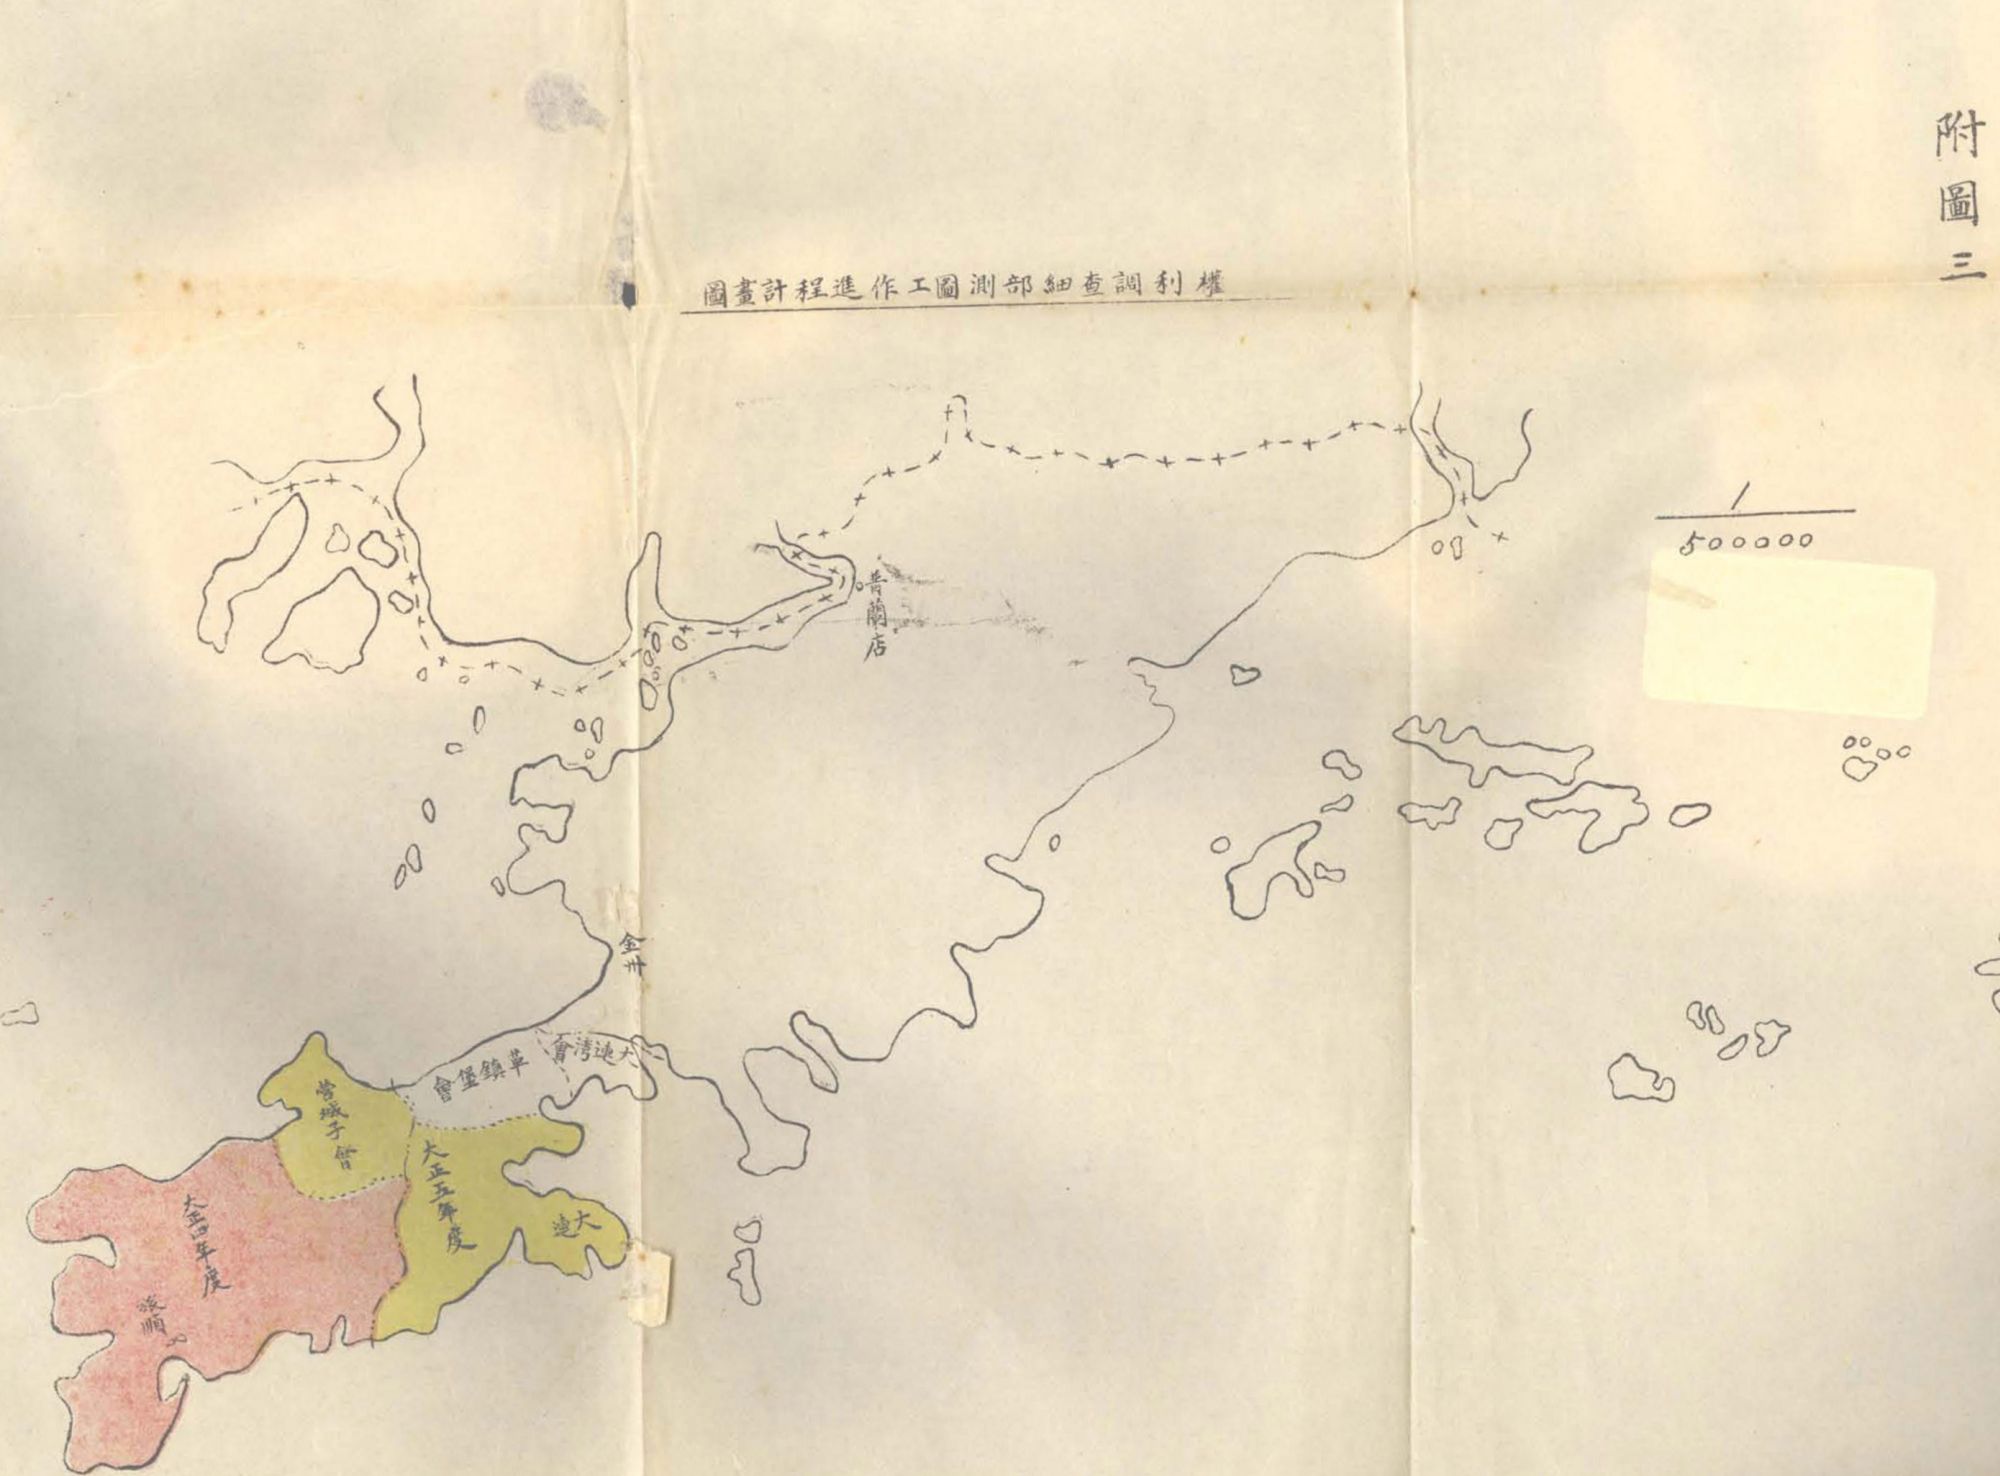 附圖三
權利調查細部測圖工作進程計畫圖
1
500000
普蘭店
金州
大連湾會
革鎮堡會
營城子會
大正五年度
大連
大正四年度
旅順